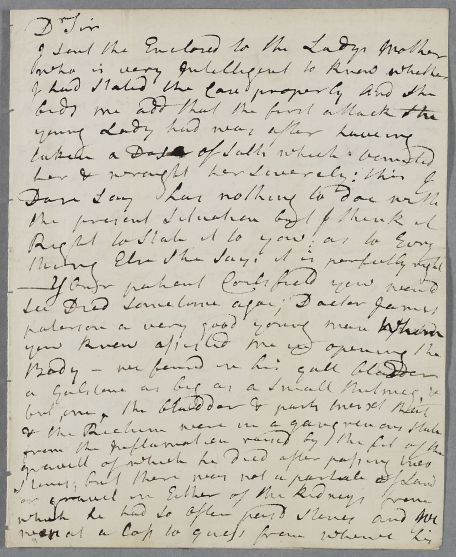 Dr Sir
I sent the Enclosed to the Ladys Mother
who is very Intelligent to know whether
I had Stated the Case properly and she
bids me add that the first attack the
young Lady had was after having
taken a Dose of Salts which vomited
her & wrought her severely; this I
Dare say has nothing to doe with
the present Situation but I think it
Right to State it to you, as to Every
thing Else she says it is perfectly right
— Your patient you
Died sometime agoe; Doctor James
paterson a very good young man whom
you knew assisted me in opening the
Body — we found in his gall bladder
a Galstone as big as a small Nutmeg, &
but one, the bladder & parts
& the Rectum were in a gangrenous state
from the Inflamation raised by the fit of the
gravell of which he died after passing two
stones; but there was not a particle of Sand
or gravel in Either of the Kidneys from
which he had so often past stones and we
were at a Loss to guess from whence his